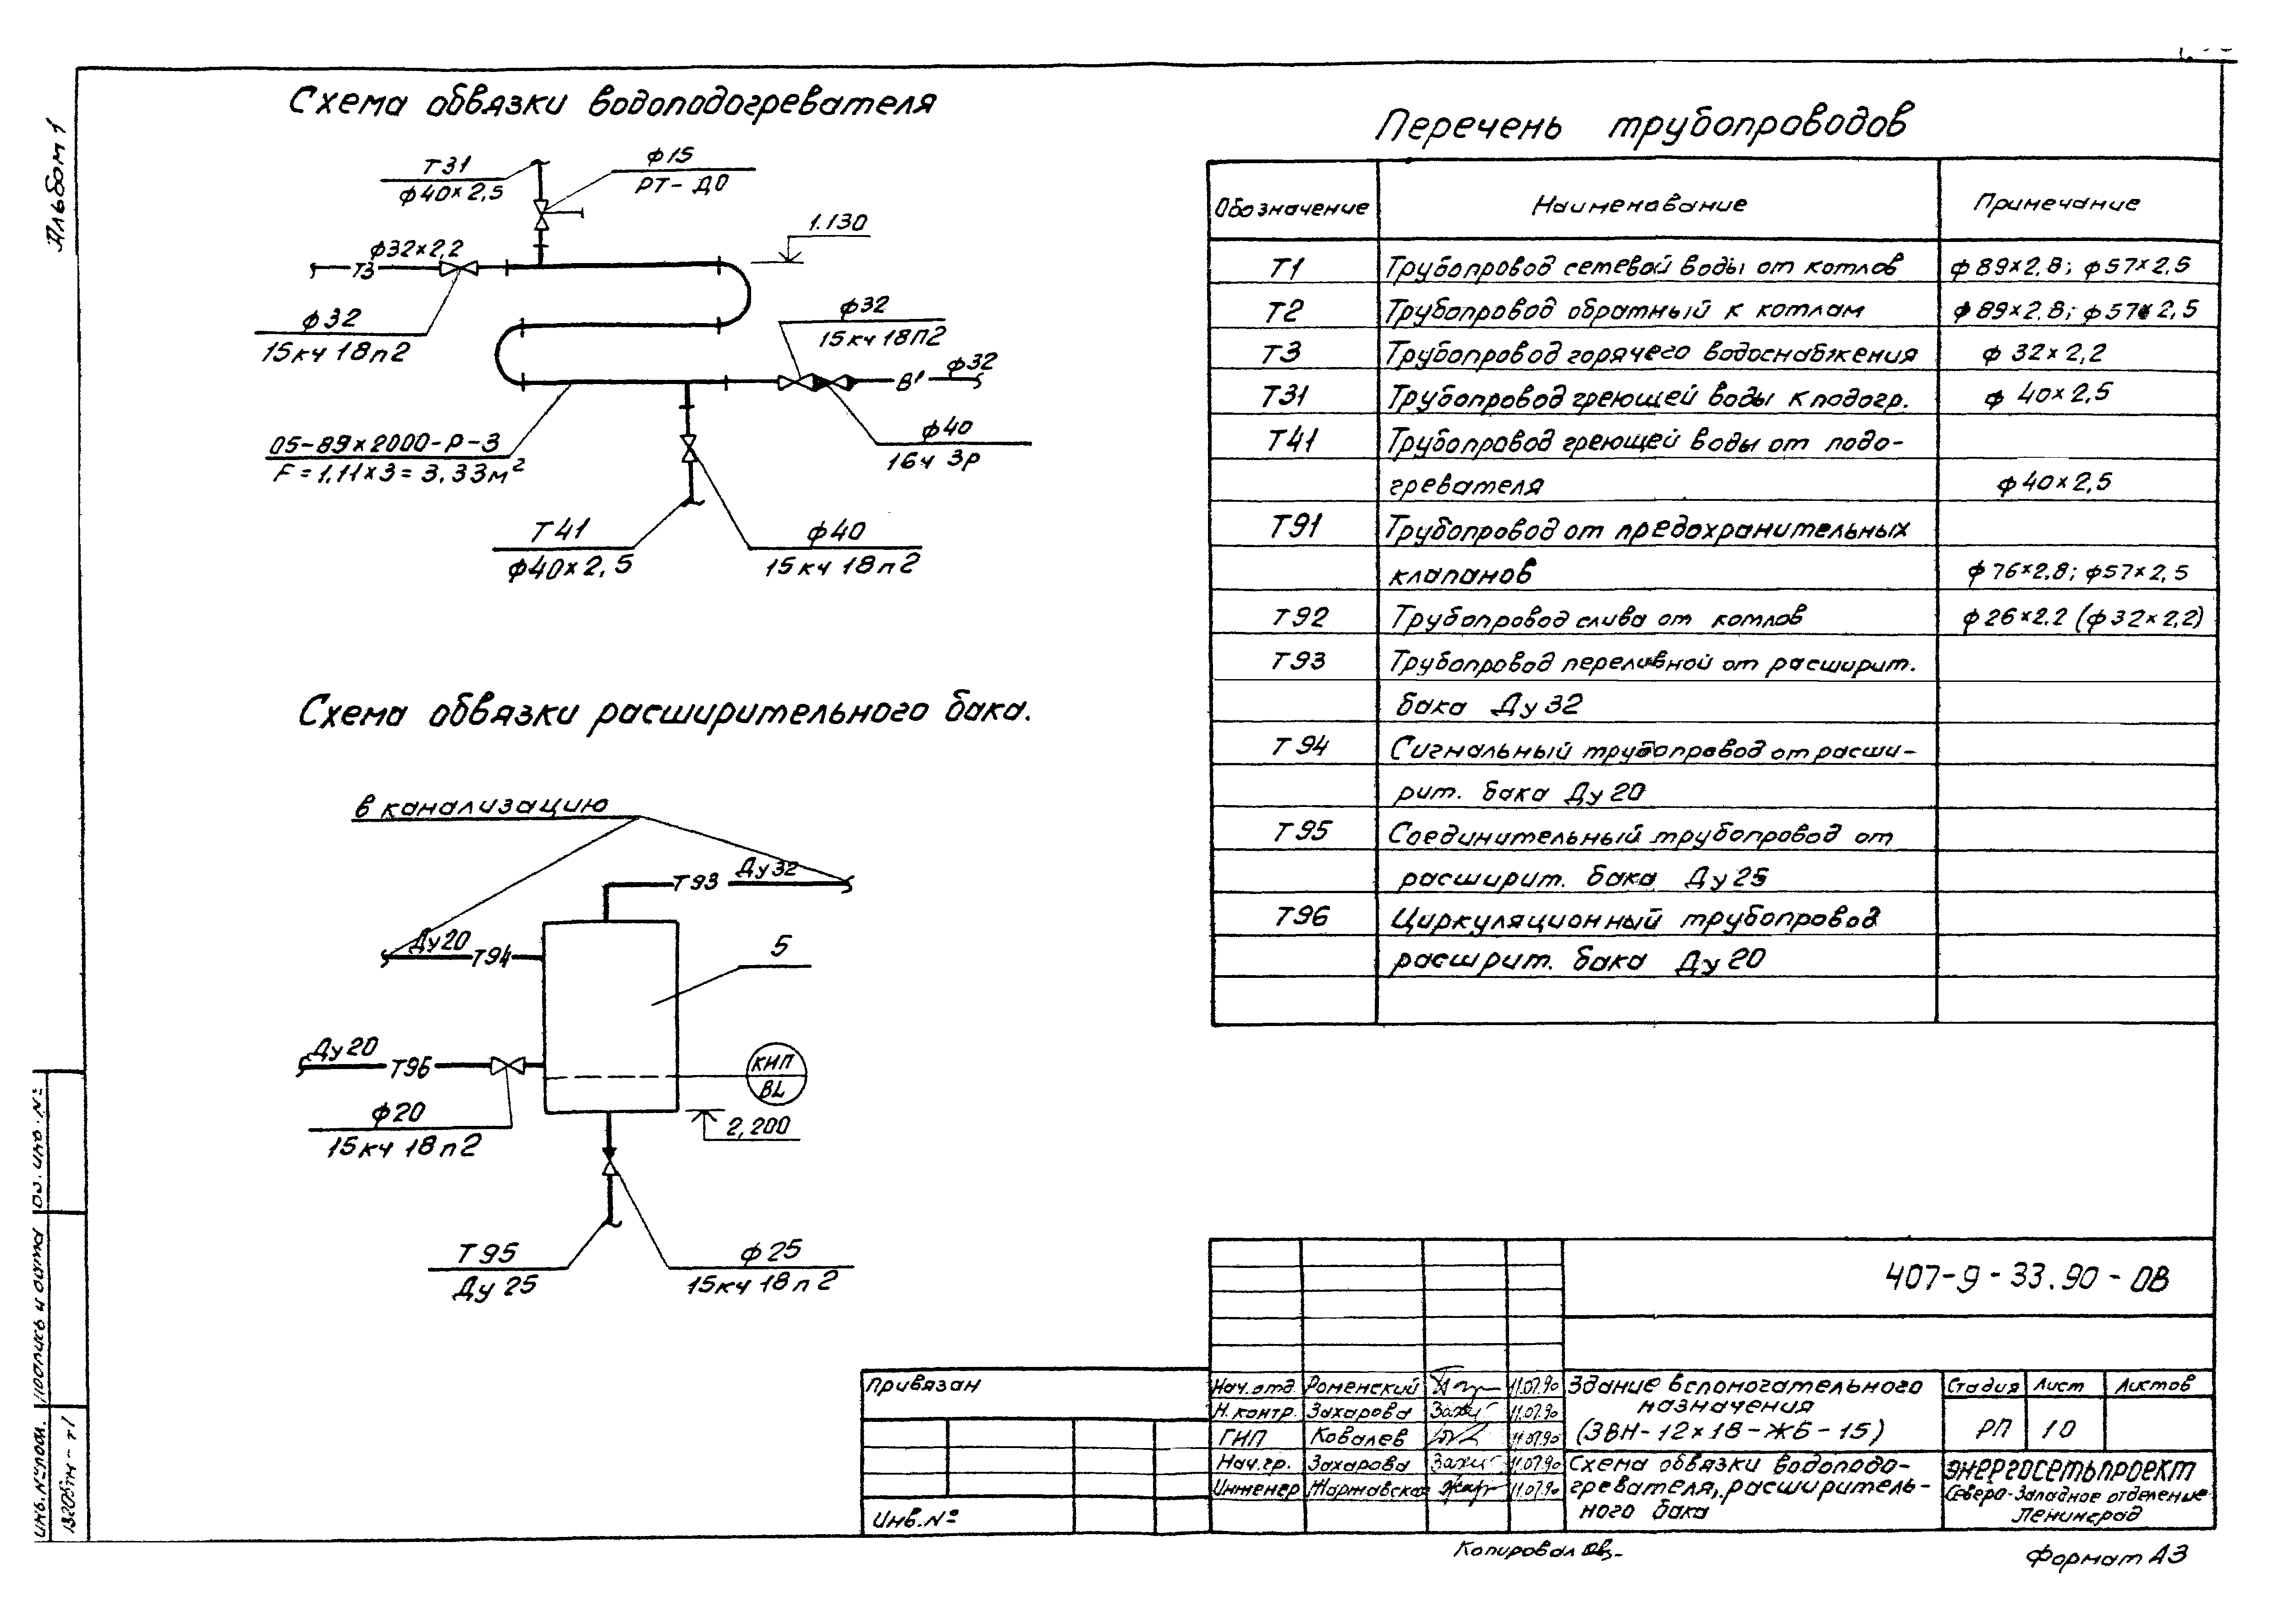 Альбом 1
Схема обвязки водоподогревателя
Т31
ф40×2,5
ф15
РТ-ДО
1.130
ф32×2,2
Т3
ф32
15кч 18п2
ф32
15кч 18П2
В1 ф32
ф40
16ч 3р
05-89×2000-Р-3
F=1,11×3=3,33м²
Т41
ф40×2,5
ф40
15кч 18п2
Схема обвязки расширительного бака.
в канализацию
Т93 Ду32
Ду20 Т94
5
Ду20 Т96
КИП
BL
ф20
15кч 18п2
2,200
Т95
Ду 25
ф25
15кч 18п2
Перечень трубопроводов
Обозначение Наименование Примечание
Т1 Трубопровод сетевой воды от котлов ф89×2,8; ф57×2,5
Т2 Трубопровод обратный к котлам ф89×2,8; ф57×2,5
Т3 Трубопровод горячего водоснабжения ф 32×2,2
Т31 Трубопровод греющей воды к подогр. ф 40×2,5
Т41 Трубопровод греющей воды от подо-
гревателя ф40×2,5
Т91 Трубопровод от предохранительных
клапанов ф76×2,8; ф57×2,5
Т92 Трубопровод слива от котлов ф26×2.2 (ф32×2,2)
Т93 Трубопровод переливной от расширит.
бака Ду 32
Т94 Сигнальный трубопровод от расши-
рит. бака Ду 20
Т95 Соединительный трубопровод от
расширит. бака Ду 25
Т96 Циркуляционный трубопровод
расширит. бака Ду 20
407-9-33.90-ОВ
Привязан
Инв.№
Нач.отд. Роменский 11.07.90
Н.контр. Захарова 11.07.90
ГИП Ковалев 11.07.90
Нач.гр. Захарова 11.07.90
Инженер 11.07.90
Здание вспомогательного
назначения
(ЗВН-12×18-ЖБ-15)
Стадия Лист Листов
РП 10
Схема обвязки водоподо-
гревателя, расширитель-
ного бака
ЭНЕРГОСЕТЬПРОЕКТ
Северо-Западное отделение
Ленинград
Копировал
Формат А3
Инв.№подл. Подпись и дата Вз. инв. №